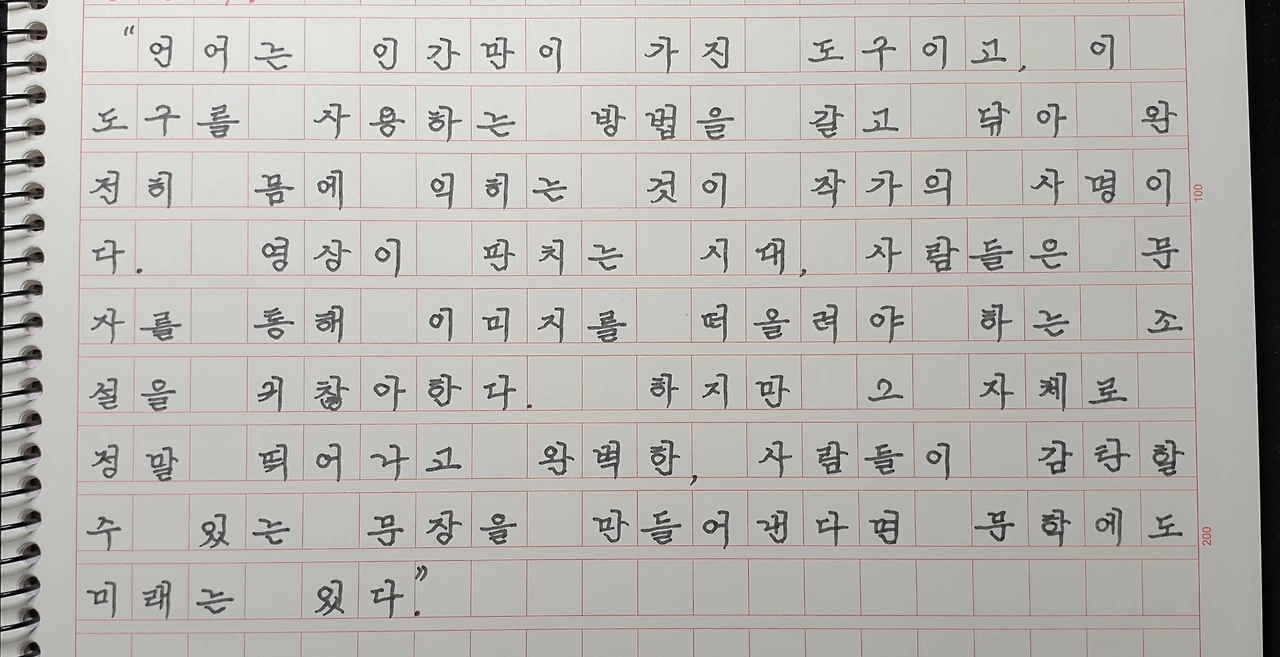 “언어는 인간만이 가진 도구이고, 이
도구를 사용하는 방법을 갈고 닦아 완
전히 몸에 익히는 것이 작가의 사명이
다. 영상이 판치는 시대, 사람들은 문
자를 통해 이미지를 떠올려야 하는 소
설을 귀찮아한다. 하지만 그 자체로
정말 뛰어나고 완벽한, 사람들이 감탄할
수 있는 문장을 만들어낸다면 문학에도
미래는 있다.”